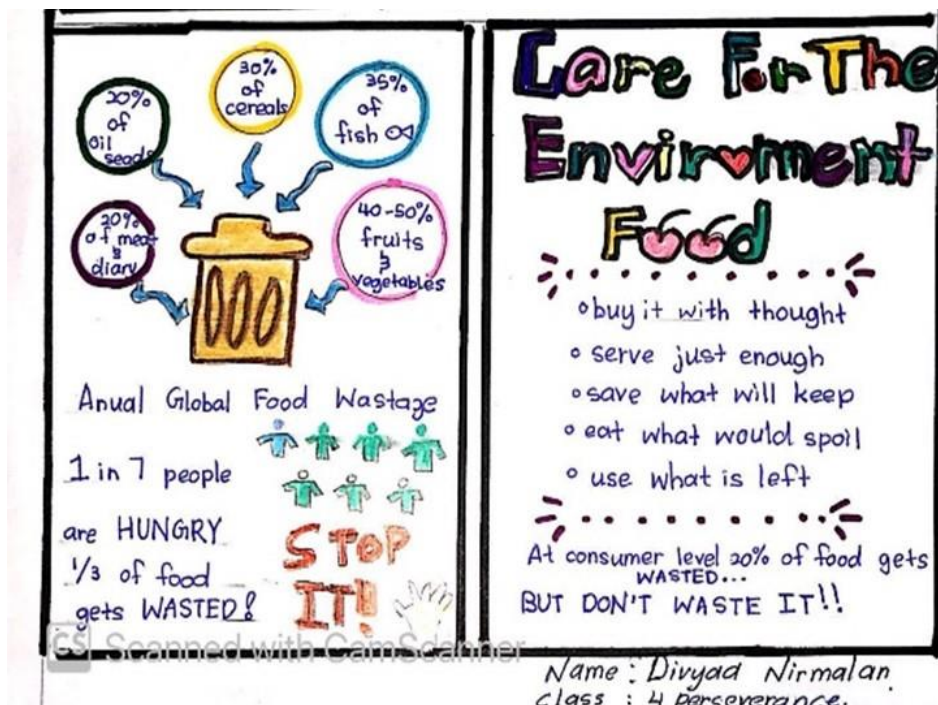 20%
of
oil
seads
30%
of
cereals
35%
of
fish
20%
of meat
&
diary
40-50%
fruits
&
vegetables
Anual Global Food Wastage
1 in 7 people
are HUNGRY
1/3 of food
gets WASTED!
STOP
IT!!
Care For The
Enviroment
Food
buy it with thought
serve just enough
save what will keep
eat what would spoil
use what is left
At consumer level 20% of food gets
WASTED...
BUT DON'T WASTE IT!!
CS Scanned with CamScanner
Name : Divyad Nirmalan
Class : 4 perseverance.